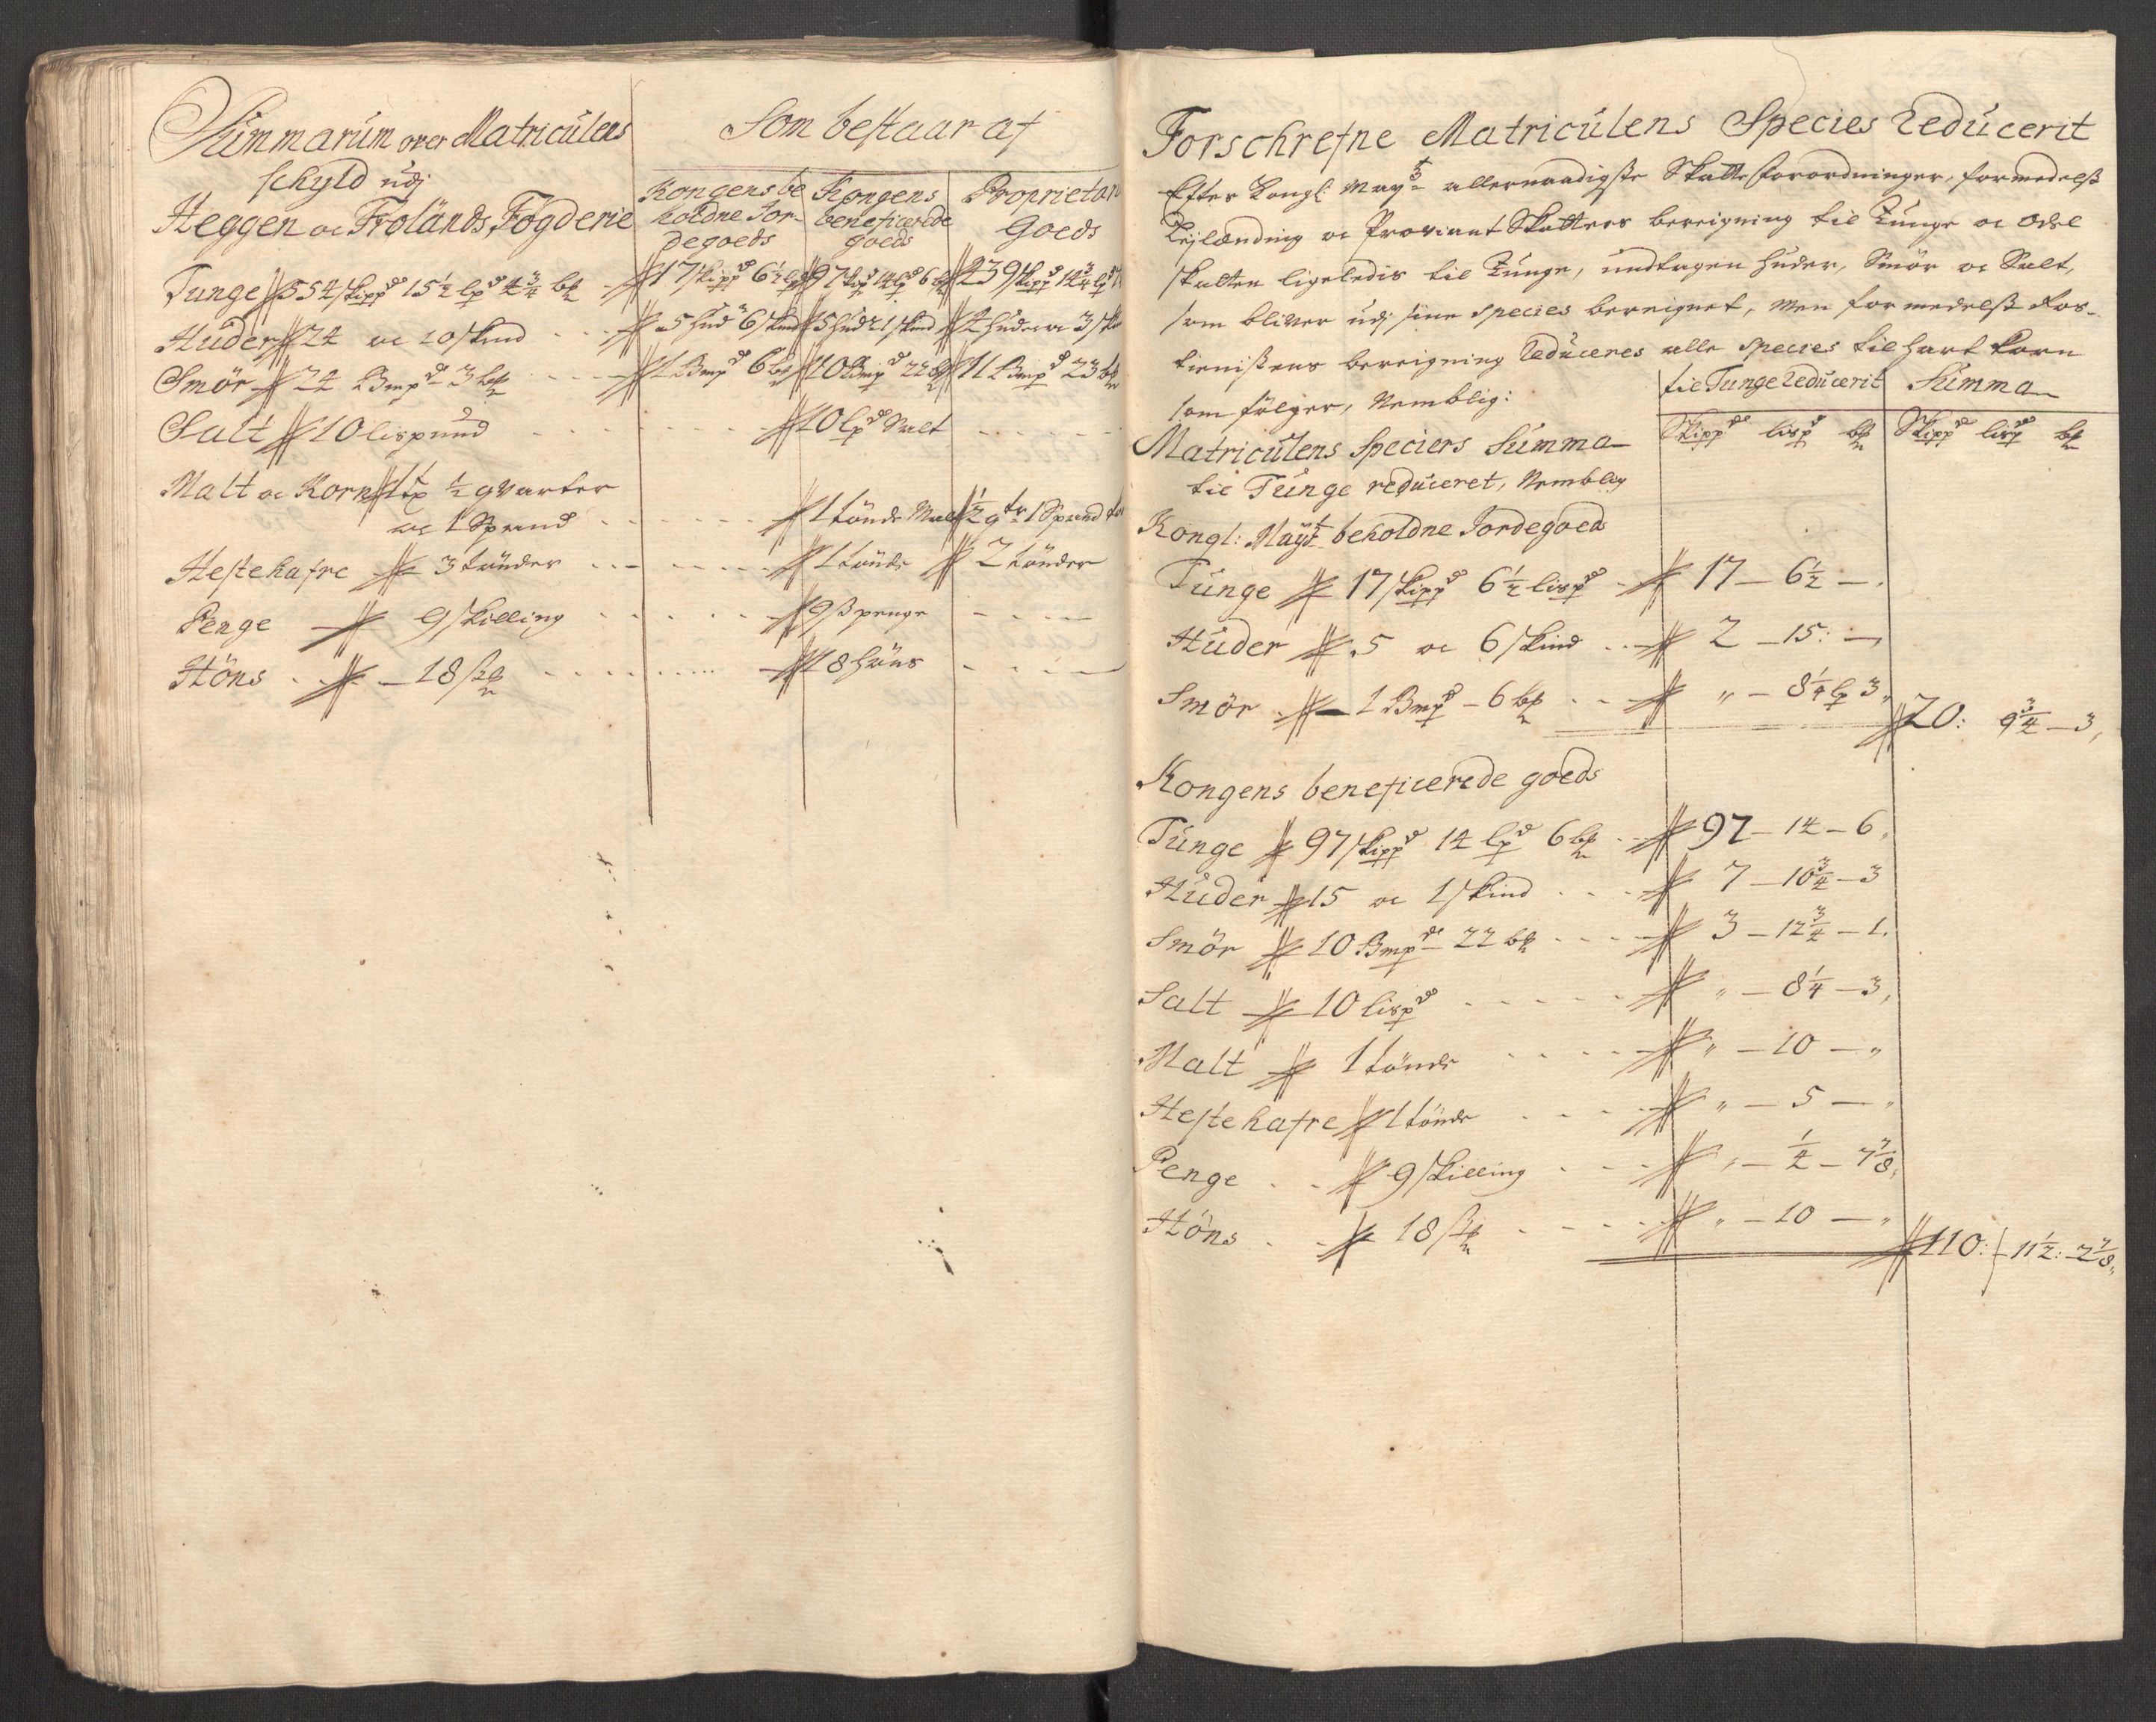 Summarum over Matriculens
schyld udj
Heggen oc Frolands Fogderie
Som bestaar af
Kongens be
holdne Jor-
degoeds
Kongens
beneficerede
goeds
Proprietar
Goeds
Tunge 354 skippd 15½ lpd 4¾ bp 17 skippd 6½ lp 97 skp 14 lpd 6 239 skipp 14¾ lpd
Huder 22 oc 10 skind 5 hud 6 skind 15 huder 1 skind 2 huder oc 3 sk
Smör 22 Bmpd 3 bp 1 Bmpd 6 bp 10 Bmpd 22 11 Bmpd 23
Salt 10 lispund 10 lpd Salt
Malt oc Korn ½ qvarter
oc 1 Spand 1 tönde Malt ½ qtr 1 Spand
Hestehafre 3 tönder 1 tönde 2 tönder
Penge 9 skilling 9 ß penge
Höns 18 stk 18 höns
Forschrefne Matriculens Species Reducerit
Efter Kongl: Mayts allernaadigste Skatte forordninger, formedelst
Leylænding oc Proviant Skatters bereigning til Tunge oc Odel
skatten ligeledis til Tunge, undtagen huder, Smör oc Salt,
som bliver udj sine species bereignet, Men formedelst Ros-
tienistens bereigning Reduceres alle species til hart korn
som fölger, Nemblig:
til Tunge Reducerit Summa
Matriculens Speciers Summa Skippd lispd bp Skippd lispd bp
til Tunge reduceret, Nemblig
Kongl: Mayts beholdne Jordegoeds
Tunge 17 skippd 6½ lispd 17 – 6½ –
Huder 5 oc 6 skind 2 – 15: –
Smör 1 Bmpd – 6 bp " – 8¼ lp 3 "
20: 9¾ – 3,
Kongens beneficerede goeds
Tunge 97 skippd 14 lpd 6 bp 97 – 14 – 6,
Huder 15 oc 1 skind 7 – 10¾ – 3
Smör 10 Bmpd 22 bp 3 – 12¾ – 1.
Salt 10 lispd " – 8¼ – 3,
Malt 1 tönde " – 10 – "
Hestehafre 1 tönde " – 5 – "
Penge 9 skilling " – ¼ – 7⅞,
Höns 18 stk " – 10 – "
110: 11½: 2⅞,